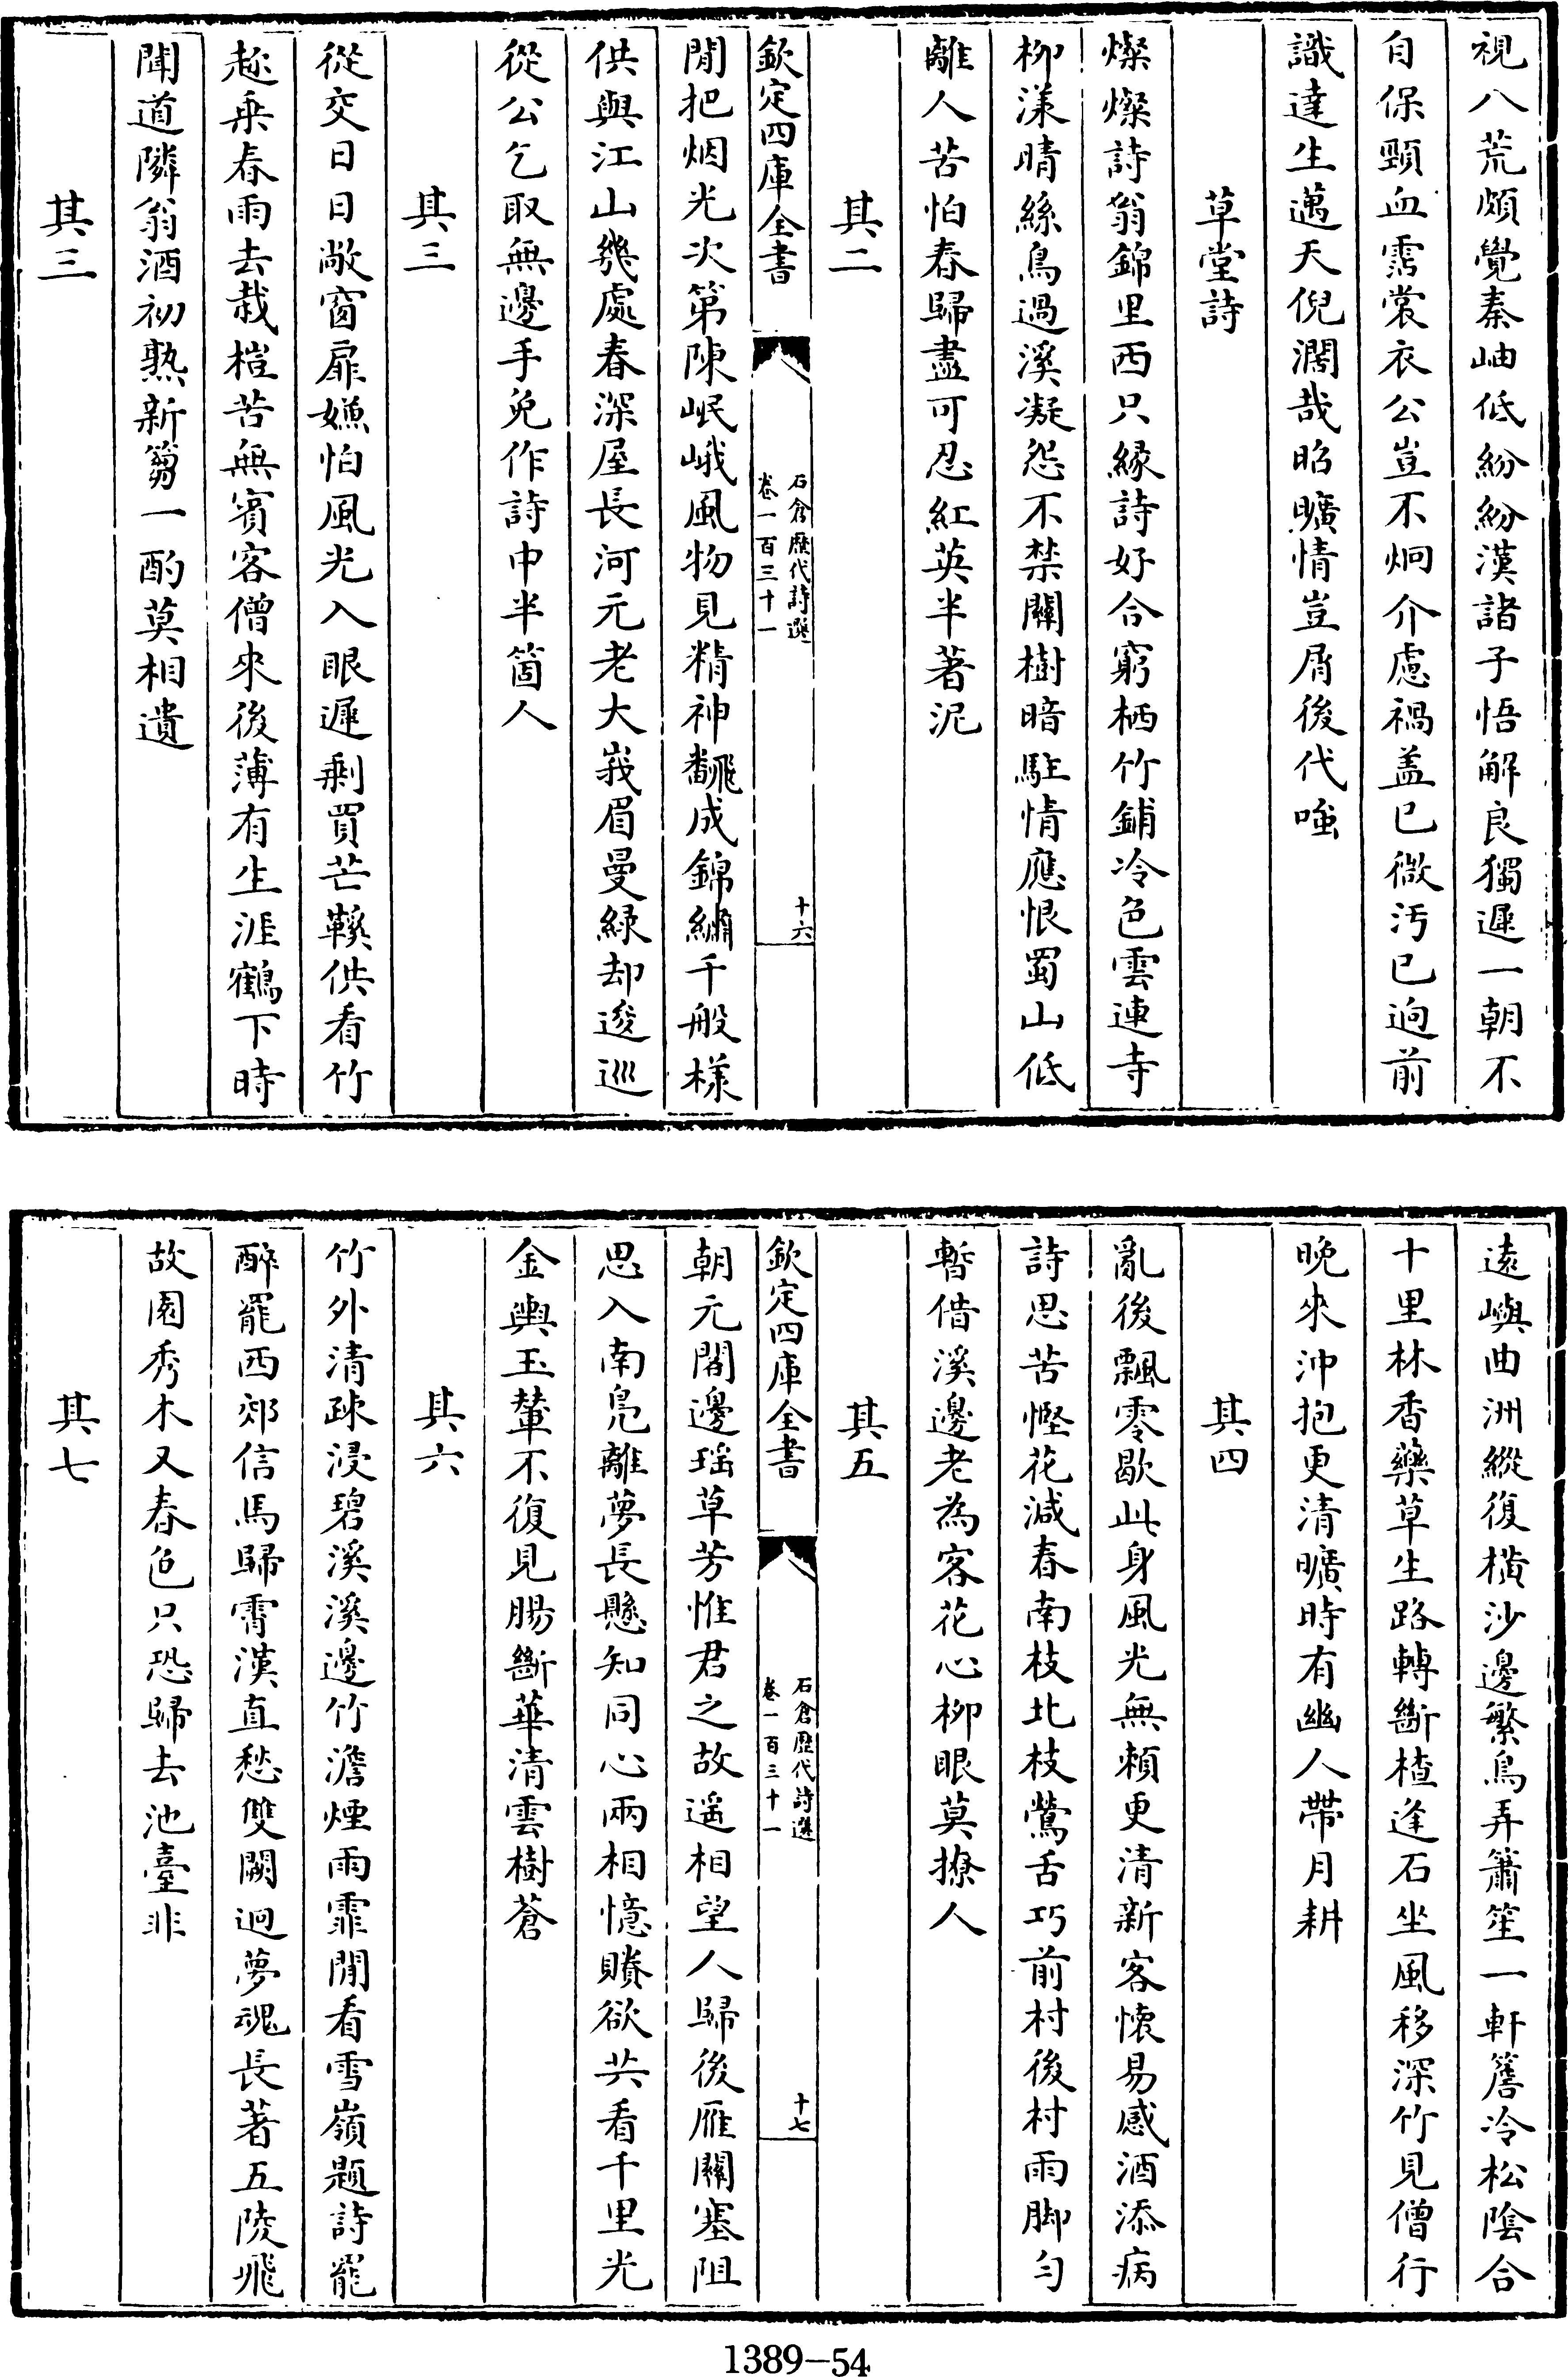 視八荒頗覺秦岫低紛紛漢諸子悟解良獨遲一朝不
自保頸血霑裳衣公豈不炯介慮禍盖已微汚已逈前
識達生邁天倪濶哉昭曠情豈屑後代嗤
草堂詩
燦燦詩翁錦里西只緣詩好合窮栖竹鋪冷色雲連寺
柳漾晴絲鳥過溪凝怨不禁關樹暗駐情應恨蜀山低
離人苦怕春歸盡可忍紅英半著泥
其二
欽定四庫全書
石倉歷代詩選
卷一百三十一
十六
閒把烟光次第陳岷峨風物見精神飜成錦繡千般樣
供與江山幾處春深屋長河元老大峩眉曼緑却逡巡
從公乞取無邊手免作詩中半箇人
其三
從交日日敞窗扉嫌怕風光入眼遲剩買芒鞵供看竹
趂乗春雨去栽榿苦無賓客僧來後薄有生涯鶴下時
聞道隣翁酒初熟新篘一酌莫相遺
其三
遠嶼曲洲縱復橫沙邊繁鳥弄簫笙一軒簷冷松陰合
十里林香藥草生路轉斷槎逢石坐風移深竹見僧行
晚來沖抱更清曠時有幽人帶月耕
其四
亂後飄零歇此身風光無頼更清新客懷易感酒添病
詩思苦慳花減春南枝北枝鶯舌巧前村後村雨脚勻
暫借溪邊老為客花心柳眼莫撩人
其五
欽定四庫全書
石倉歷代詩選
卷一百三十一
十七
朝元閣邊瑶草芳惟君之故遥相望人歸後雁關塞阻
思入南鳧離夢長懸知同心兩相憶賸欲共看千里光
金輿玉輦不復見腸斷華清雲樹蒼
其六
竹外清疎浸碧溪溪邊竹澹煙雨霏閒看雪嶺題詩罷
醉罷西郊信馬歸霄漢直愁雙闕迥夢魂長著五陵飛
故園秀木又春色只恐歸去池臺非
其七
1389-54